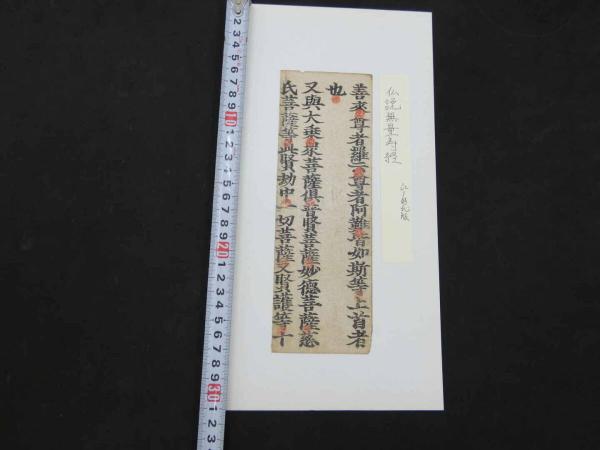 仏説無量寿経
善來尊者羅云尊者阿難皆如斯等上首者
也
又與大乘衆菩薩俱普賢菩薩妙德菩薩慈
氏菩薩等此賢劫中一切菩薩又賢護等十
2
3
4
5
6
7
8
9
10
1
2
3
4
5
6
7
8
9
20
1
2
3
4
5
6
7
8
9
30
1
2
3